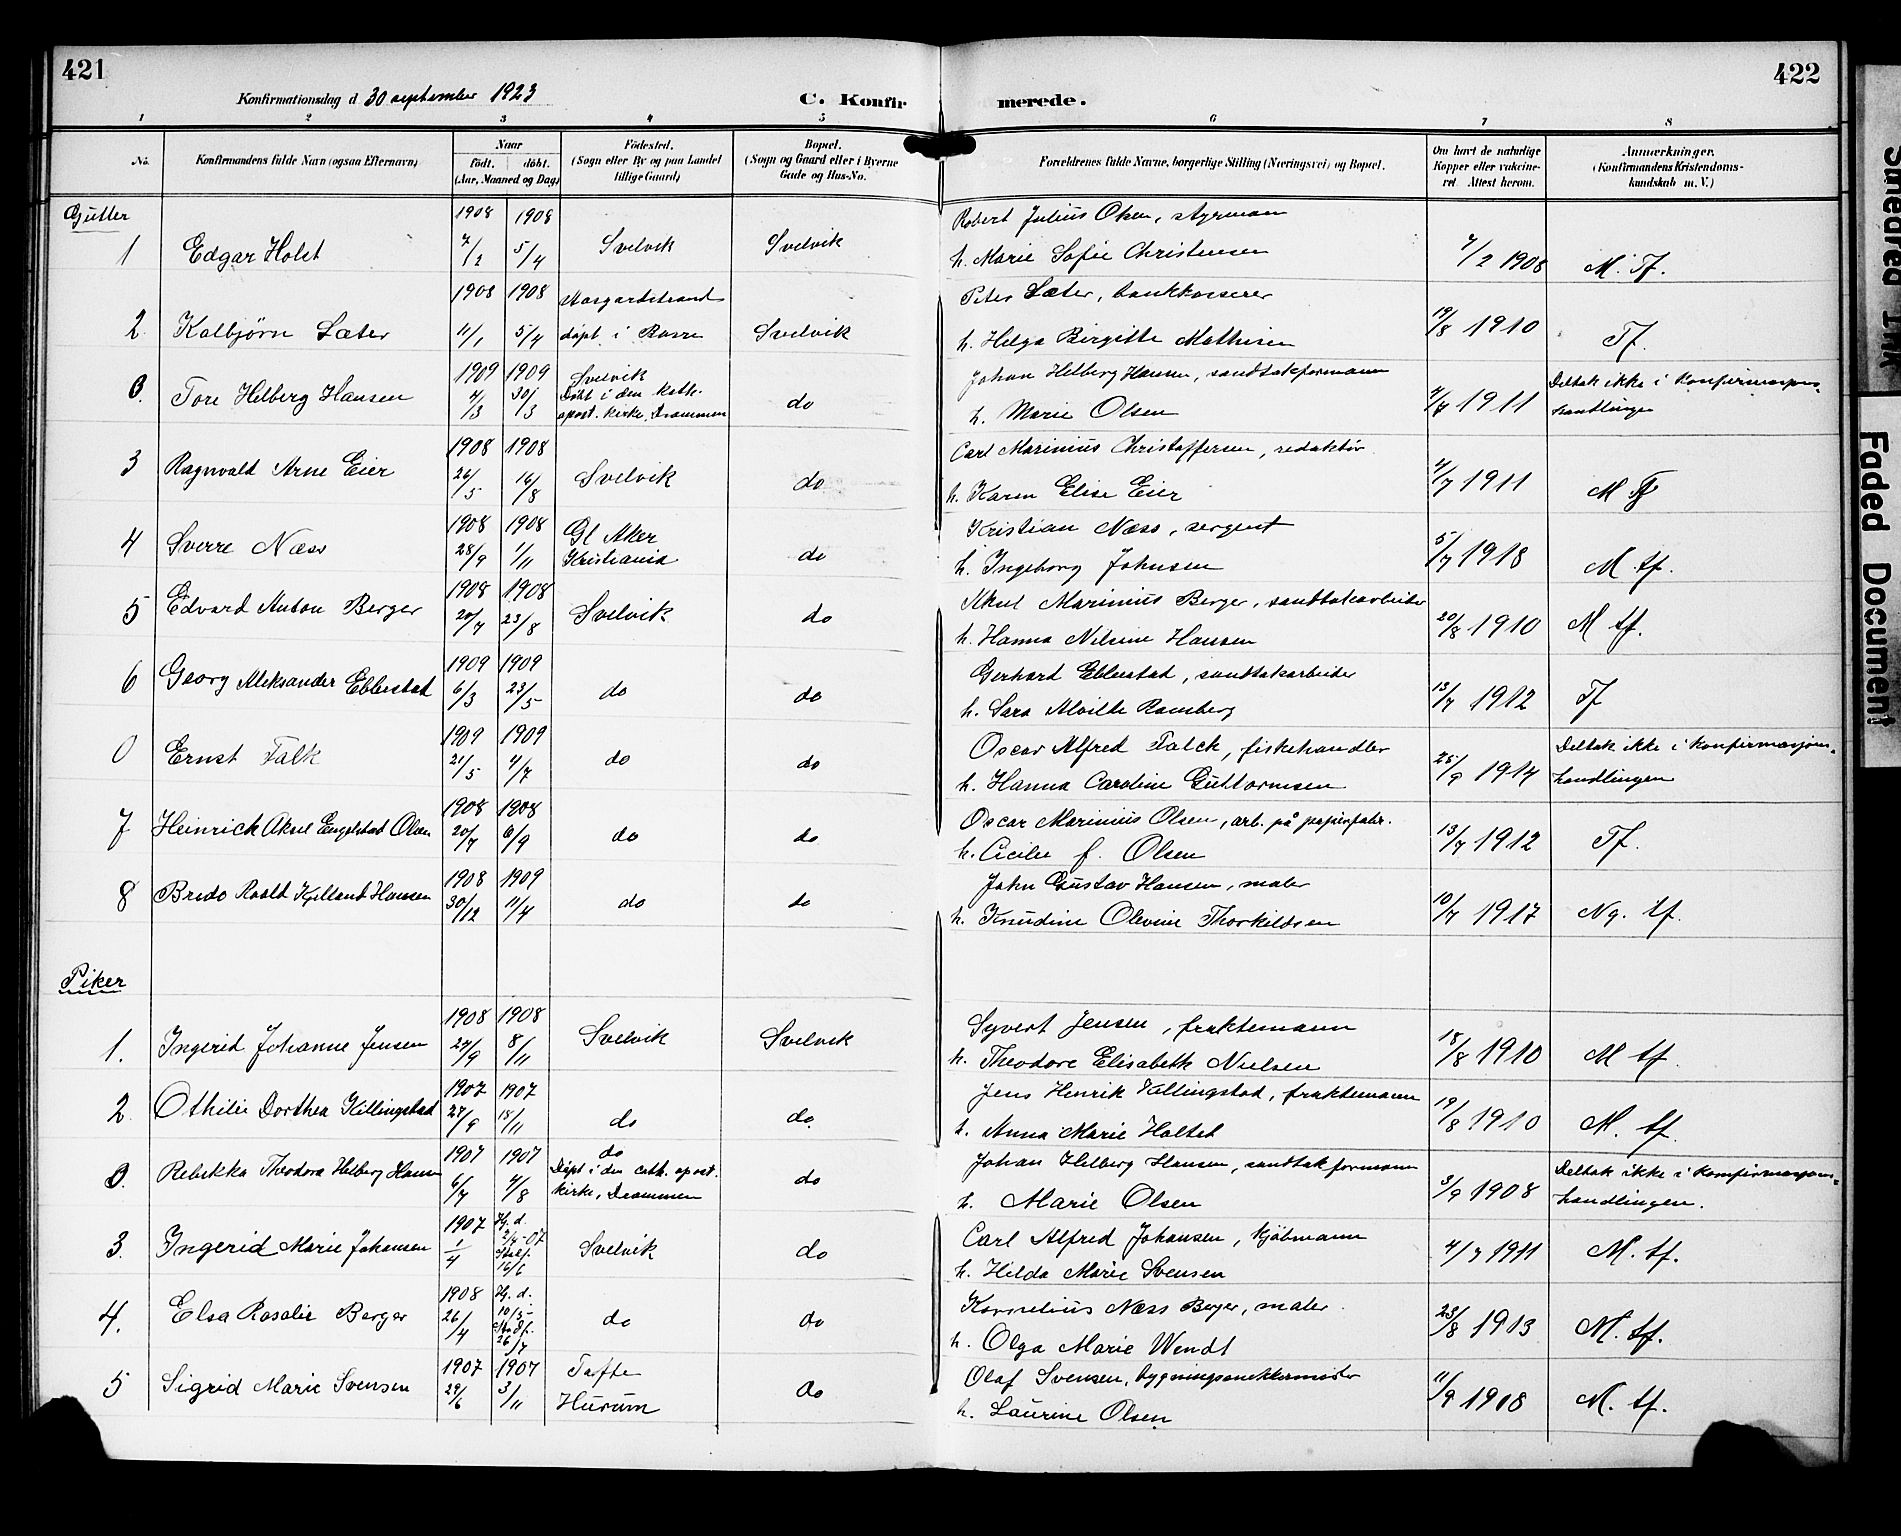 421
422
Konfirmationsdag d 30 september 1923
C. Konfirmerede.
1 2 3 4 5 6 7 8
No.
Konfirmandens fulde Navn (ogsaa Efternavn)
Naar
født. døbt.
(Aar, Maaned og Dag)
Fødested.
(Sogn eller By og paa Landet
tillige Gaard)
Bopæl.
(Sogn og Gaard eller i Byerne
Gade og Hus-No.
Forældrenes fulde Navne, borgerlige Stilling (Næringsvei) og Bopæl.
Om havt de naturlige
Kopper eller vaksine-
ret. Attest herom.
Anmærkninger.
(Konfirmandens Kristendoms-
kundskab m. V.)
Gutter
1 Edgar Holst 1908 7/2 1908 5/4 Svelvik Svelvik
Robert Julius Olsen, styrmann
h. Marie Sofie Christensen 7/2 1908 M. Tf.
2 Kolbjørn Sæter 1908 11/1 1908 5/4 Aasgaardstrand
døpt i Borre Svelvik
Peter Sæter, bankkasserer
h. Helga Birgitte Mathisen 19/8 1910 Tf.
0. Tore Helberg Hansen 1909 4/3 1909 30/3 Svelvik
Døbt i den kath.
apost. kirke, Drammen do
Johan Helberg Hansen, sandtakformann
h. Marie Olsen 4/7 1911 Deltok ikke i konfirmasjons-
handlingen
3 Ragnvald Arne Eier 1908 26/5 1908 16/8 Svelvik do
Carl Marinius Christoffersen, redaktør
h. Karen Elise Eier 4/7 1911 M Tf
4 Sverre Næss 1908 28/9 1908 1/11 Gl Aker
Kristiania do
Kristian Næss, sergent
h. Ingeborg Johnsen 5/7 1918 M. tf.
5 Edvard Anton Berger 1908 20/7 1908 23/8 Svelvik do
Aksel Marinius Berger, sandtakarbeider
h. Hanna Nilsine Hansen 20/8 1910 M tf.
6 Georg Aleksander Ebbestad 1909 6/3 1909 23/5 do do
Gerhard Ebbestad, sandtakarbeider
h. Sara Alvilde Ramberg 13/7 1912 Tf
0 Ernst Falk 1909 21/5 1909 4/7 do do
Oscar Alfred Falck, fiskehandler
h. Hanna Caroline Guttormsen 25/9 1914 Deltok ikke i konfirmasjons-
handlingen
7 Heinrich Aksel Engelstad Olsen 1908 20/7 1908 6/9 do do
Oscar Marinius Olsen, arb. på papirfabr.
h. Cicilie f. Olsen 13/7 1912 Tf.
8 Bredo Roald Kjelland Hansen 1908 30/12 1909 11/4 do do
John Gustav Hansen, maler
h. Knudine Olevine Thorkildsen 10/7 1917 Ng. tf.
Piker
1. Ingerid Johanne Jensen 1908 24/9 1908 8/11 Svelvik Svelvik
Syvert Jensen, fraktemann
h. Theodore Elisabeth Nielsen 18/8 1910 M tf.
2 Othilie Dorthea Killingstad 1907 27/9 1907 18/11 do do
Jens Henrik Killingstad, fraktemann
h. Anna Marie Holtet 19/8 1910 M. tf.
0. Rebekka Theodora Helberg Hansen 1907 6/7 1907 4/8 do
Døpt i den cath. apost.
kirke, Drammen do
Johan Helberg Hansen, sandtakformann
h. Marie Olsen 3/9 1908 Deltok ikke i konfirmasjons-
handlingen.
3. Ingerid Marie Johansen 1907 1/4 Hj. d.
2/4-07
Stadf.
16/6 Svelvik do
Carl Alfred Johansen, kjøbmann
h. Hilda Marie Svensen 4/7 1911 M. tf.
4. Elsa Rosalie Berger 1908 26/4 Hj. d.
10/5-
Stadf.
26/7 do do
Kornelius Næss Berger, maler
h. Olga Marie Wendt 23/8 1913 M. tf.
5 Sigrid Marie Svensen 1907 29/6 1907 3/11 Tofte
Hurum do
Olaf Svensen, bygningssnekkermester
h. Laurine Olsen 11/9 1908 M. tf.
Smeared Ink
Faded Document